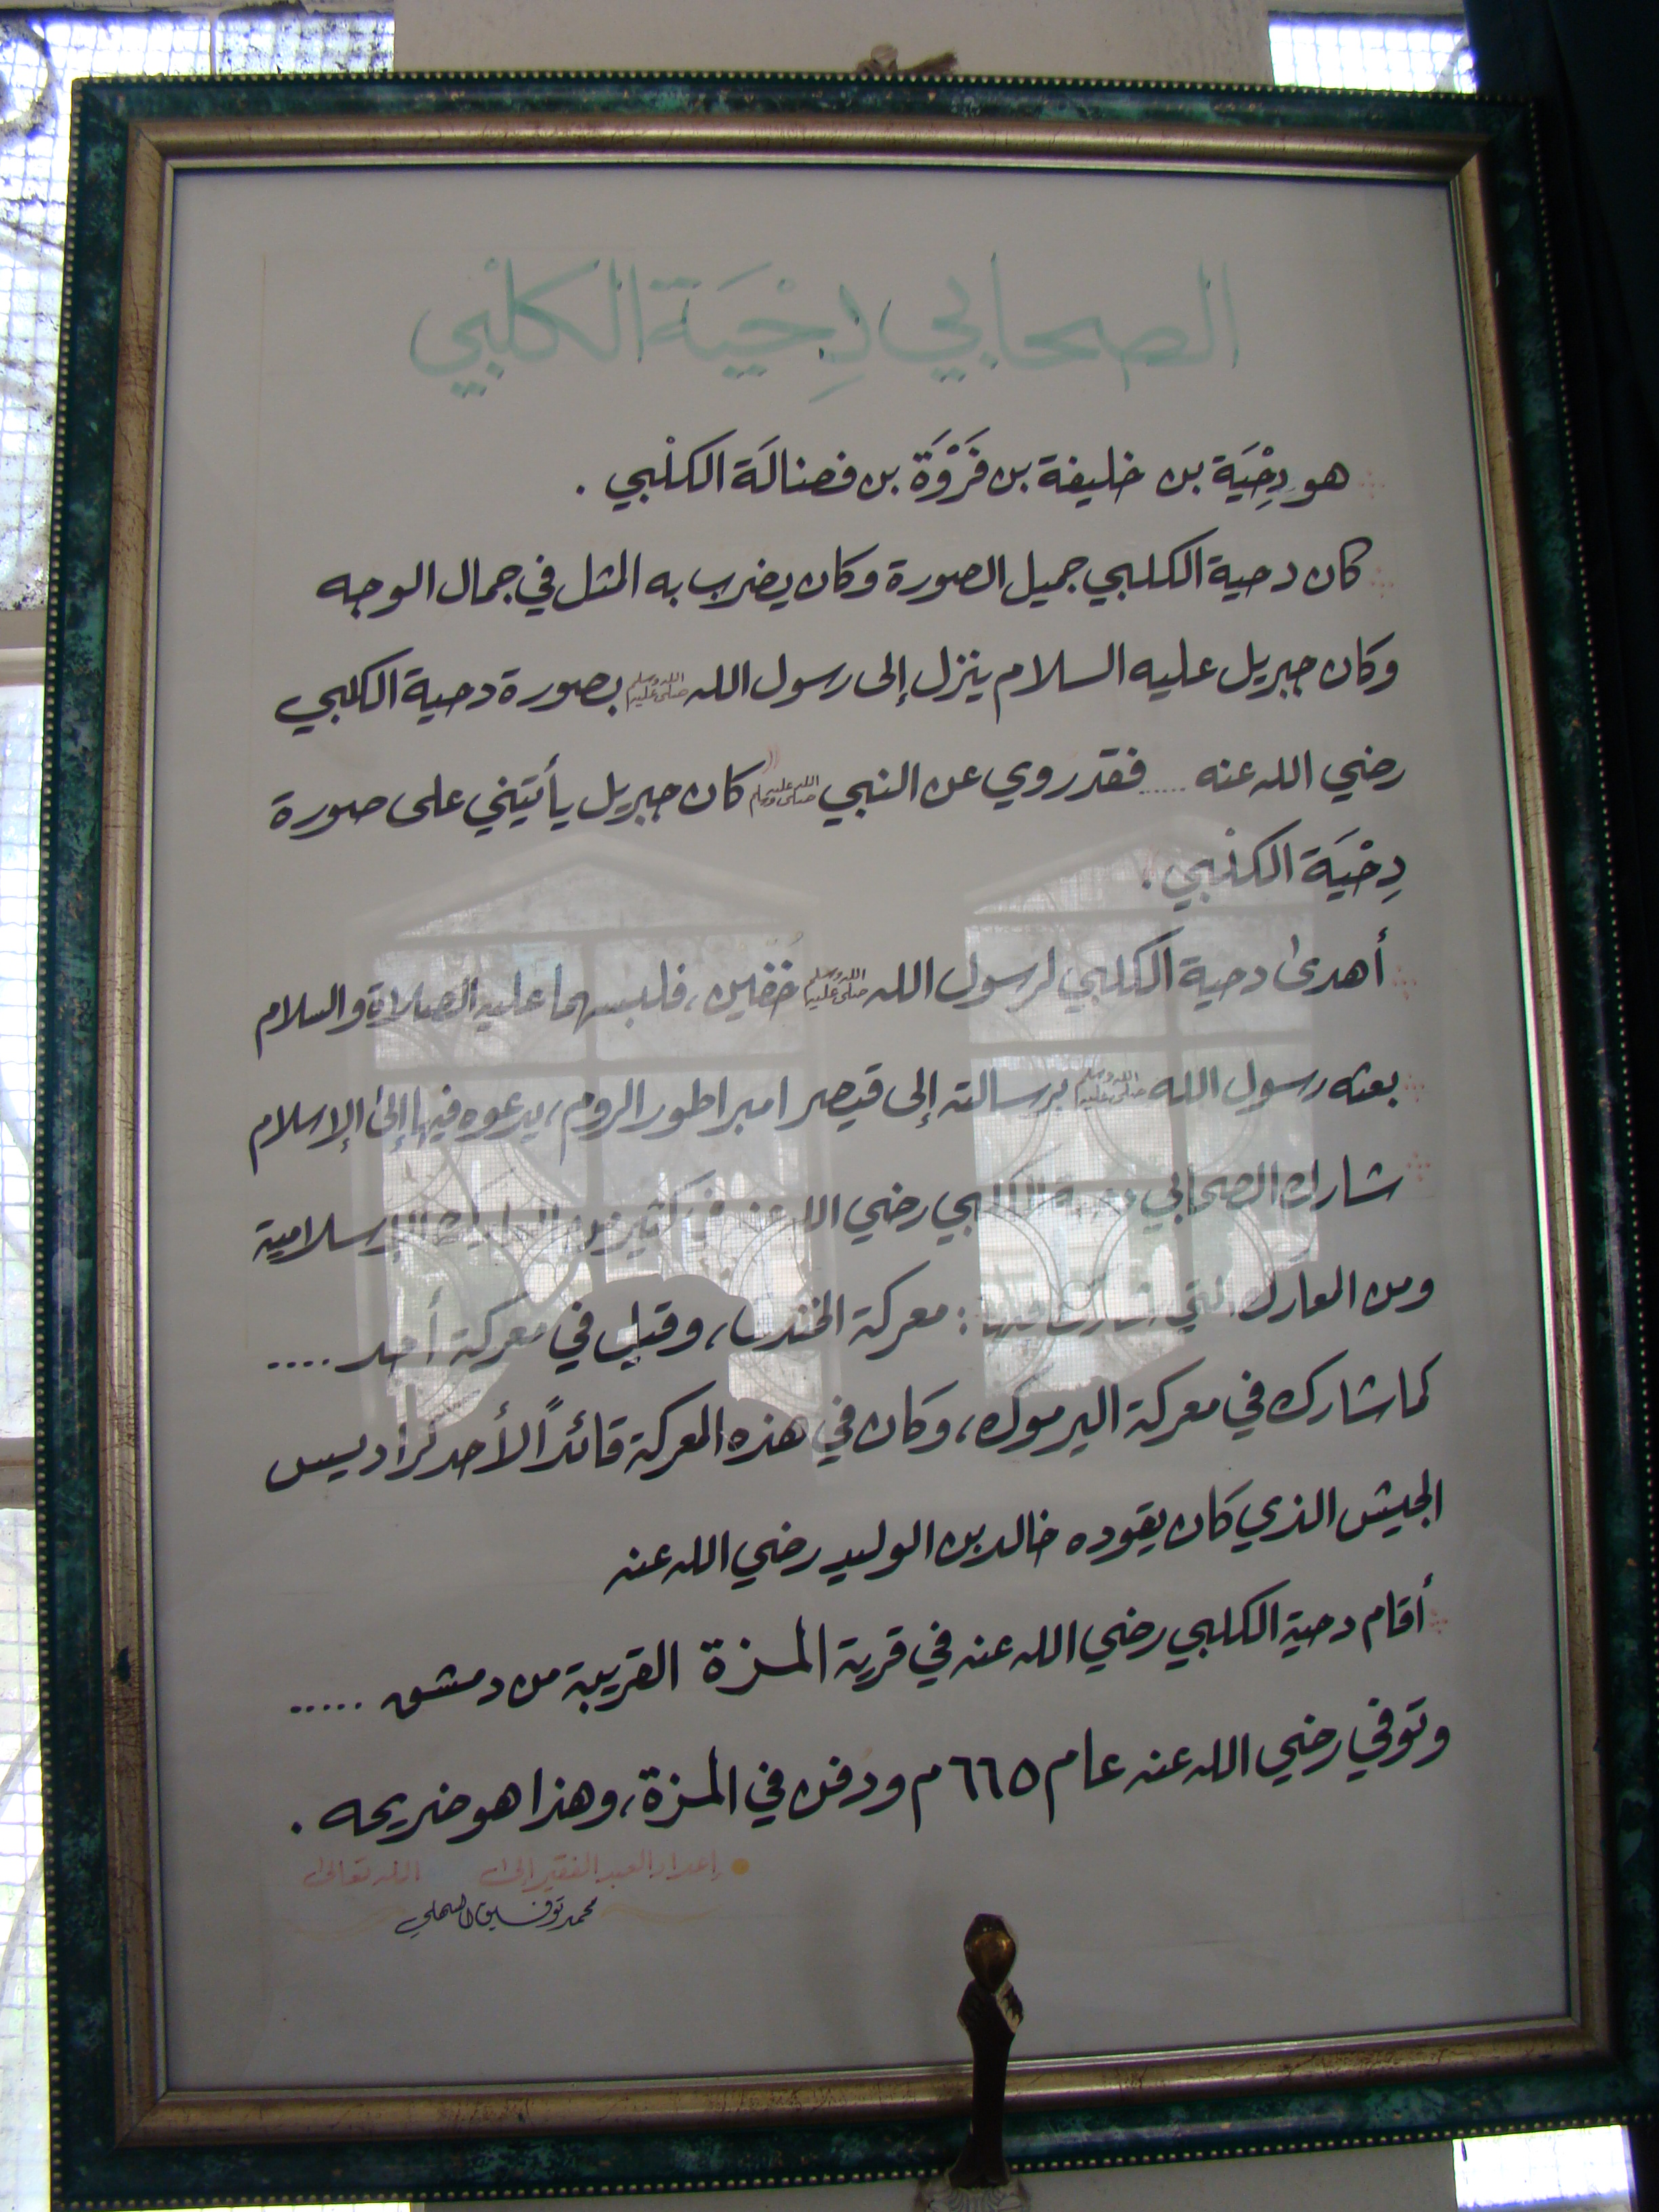 الصحابي دِحْيَة الكلْبي
هو دِحْيَة بن خليفة بن فَرْوَة بن فضالَة الكلْبي .
كان دحية الكلبي جميل الصورة وكان يضرب به المثل في جمال الوجه
وكان جبريل عليه السلام ينزل إلى رسول الله ﷺ بصورة دحية الكلبي
رضي الله عنه ..... فقد روي عن النبي ﷺ (( كان جبريل يأتيني على صورة
دِحْيَة الكلْبي .
أهدى دحية الكلبي لرسول الله ﷺ خُفّين ، فلبسهما عليه الصلاة والسلام
بعثه رسول الله ﷺ برسالته إلى قيصر امبراطور الروم ، يدعوه فيها إلى الإسلام
شارك الصحابي دحية الكلبي رضي الله عنه في كثير من المعارك الإسلامية
ومن المعارك التي شارك فيها : معركة الخندق ، وقيل في معركة أحد ....
كما شارك في معركة اليرموك ، وكان في هذه المعركة قائداً لأحد كراديس
الجيش الذي كان يقوده خالد بن الوليد رضي الله عنه
أقام دحية الكلبي رضي الله عنه في قرية المزة القريبة من دمشق .....
وتوفي رضي الله عنه عام ٦٦٥ م ودفن في المزة ، وهذا هو ضريحه .
إعداد العبد الفقير إلى الله تعالى
محمد توفيق